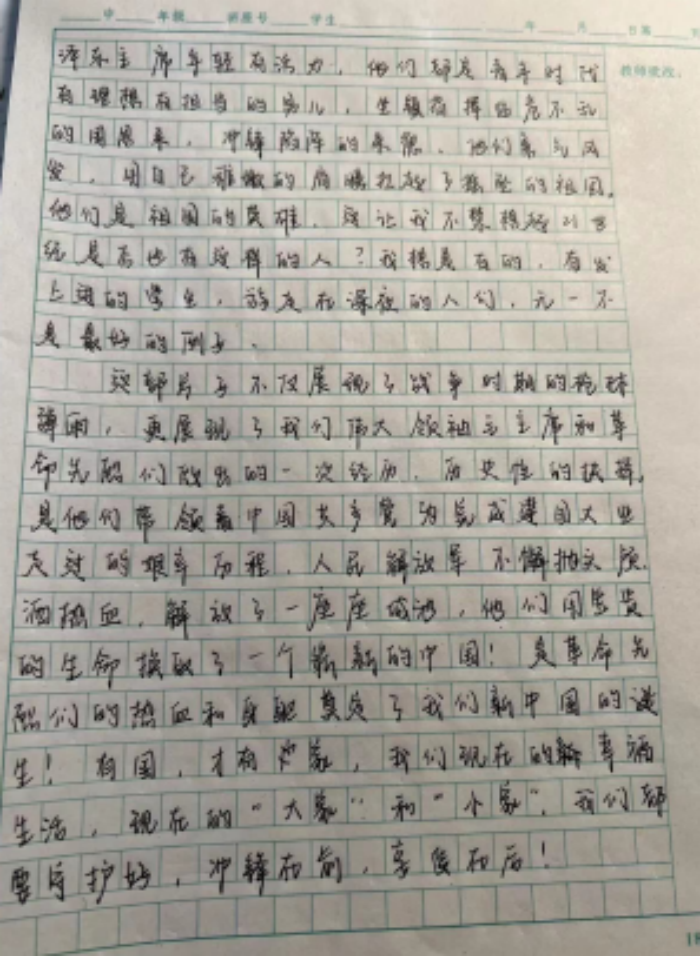 中 年级 班座号 学生 年 月 日第 页
教师批改:
泽东主席年轻有活力,他们都是青年时代
有理想有担当的男儿,坐镇指挥临危不乱
的周恩来,冲锋陷阵的朱德,他们意气风
发,用自己稚嫩的肩膀扛起了 的祖国。
他们是祖国的英雄,这让我不禁想起21世
纪是否也有这样的人?我想是有的,奋发
上进的学生,奔走在深夜的人们,无一不
是最好的例子。
这部片子不仅展现了战争时期的枪林
弹雨,更展现了我们伟大领袖毛主席和革
命先烈们做出的一次经历,历史性的抉择,
是他们带领着中国共产党为完成建国大业
走过的艰辛历程,人民解放军不惧抛头颅
洒热血,解放了一座座城池,他们用宝贵
的生命换取了一个崭新的中国!是革命先
烈们的热血和身躯奠定了我们新中国的诞
生!有国,才有 家,我们现在的幸福
生活,现在的“大家”和“小家”,我们都
要守护好,冲锋在前,享受在后!
18